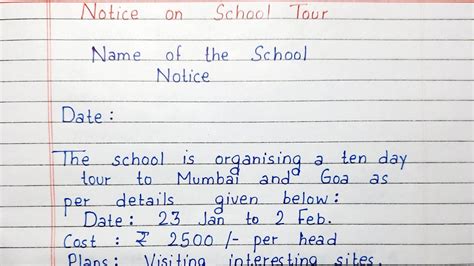 Notice on School Tour
Name of the School
Notice
Date :
The school is organising a ten day
tour to Mumbai and Goa as
per details given below :
Date : 23 Jan to 2 Feb.
Cost : ₹ 2500 /- per head
Plans : Visiting interesting sites.